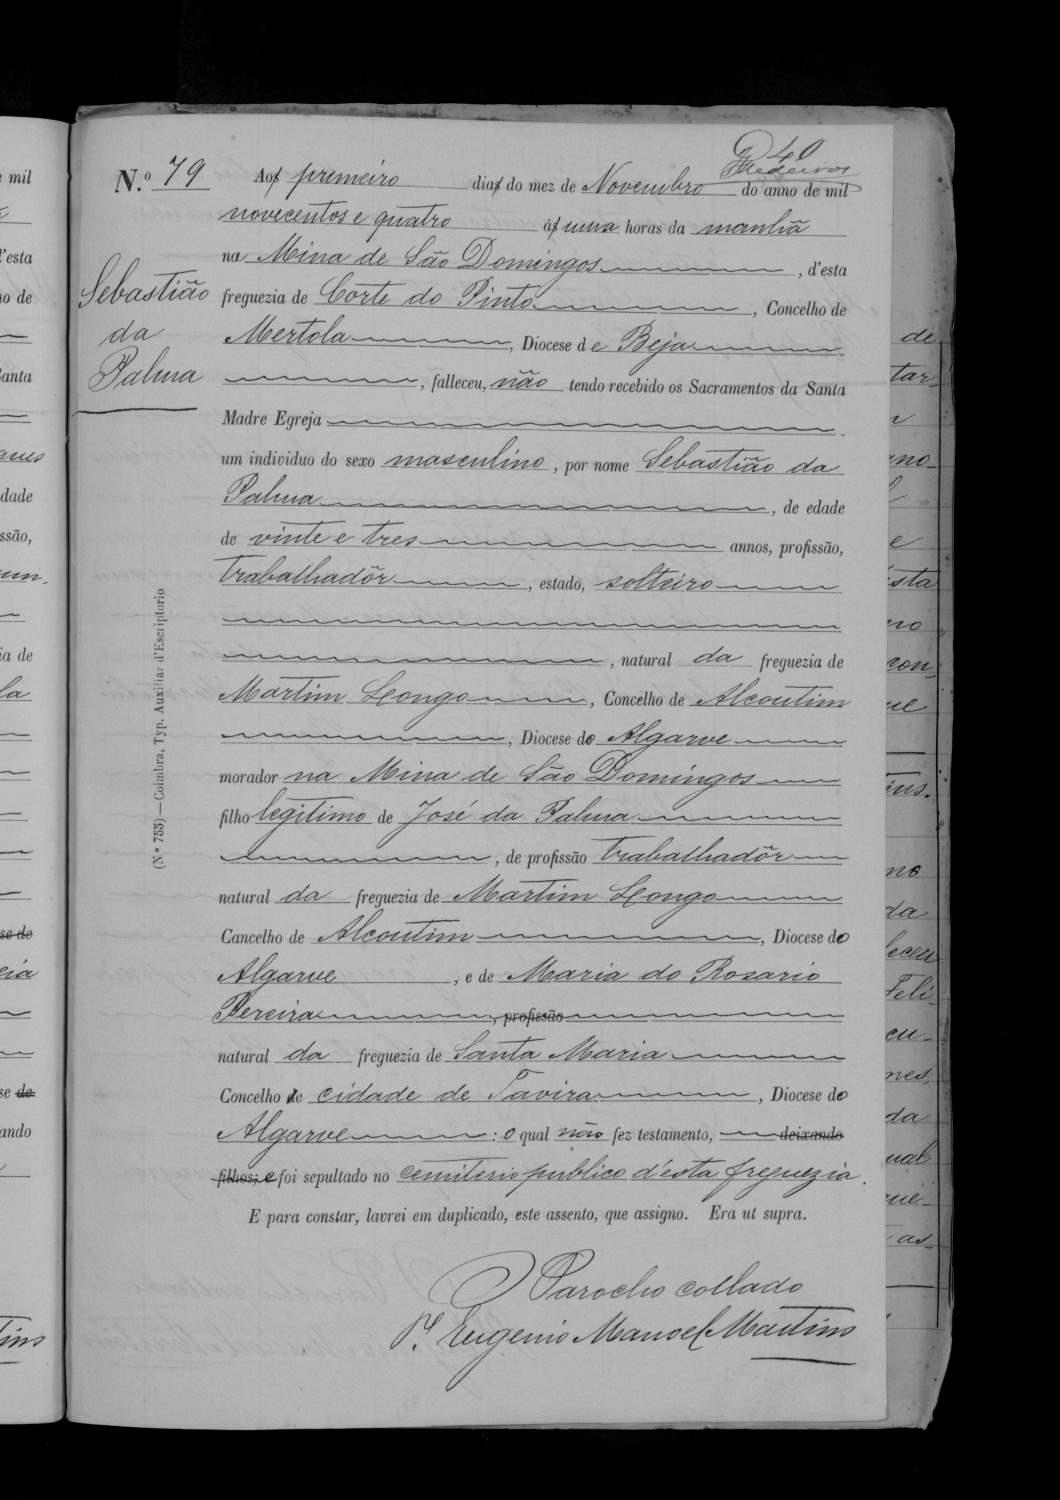 40
Medeiros
N.º 79
Aos primeiro dias do mez de Novembro do anno de mil
novecentos e quatro ás uma horas da manhã
na Mina de São Domingos, d'esta
Sebastião
da
Palma
freguezia de Corte do Pinto, Concelho de
Mertola, Diocese de Beja
, falleceu, não tendo recebido os Sacramentos da Santa
Madre Egreja.
um individuo do sexo masculino, por nome Sebastião da
Palma, de edade
de vinte e tres annos, profissão,
trabalhadôr, estado, solteiro
, natural da freguezia de
Martim Longo, Concelho de Alcoutim
, Diocese do Algarve
morador na Mina de São Domingos
filho legitimo de José da Palma
, de profissão trabalhadôr
natural da freguezia de Martim Longo
Cancelho de Alcoutim, Diocese do
Algarve, e de Maria do Rosario
Pereira, profissão
natural da freguezia de Santa Maria
Concelho de cidade de Tavira, Diocese do
Algarve: o qual não fez testamento, deixando
filhos; e foi sepultado no cemiterio publico d'esta freguezia.
E para constar, lavrei em duplicado, este assento, que assigno. Era ut supra.
O Parocho collado
P.e Eugenio Manoel Martins
(N.º 755)—Coimbra, Typ. Auxiliar d'Escriptorio